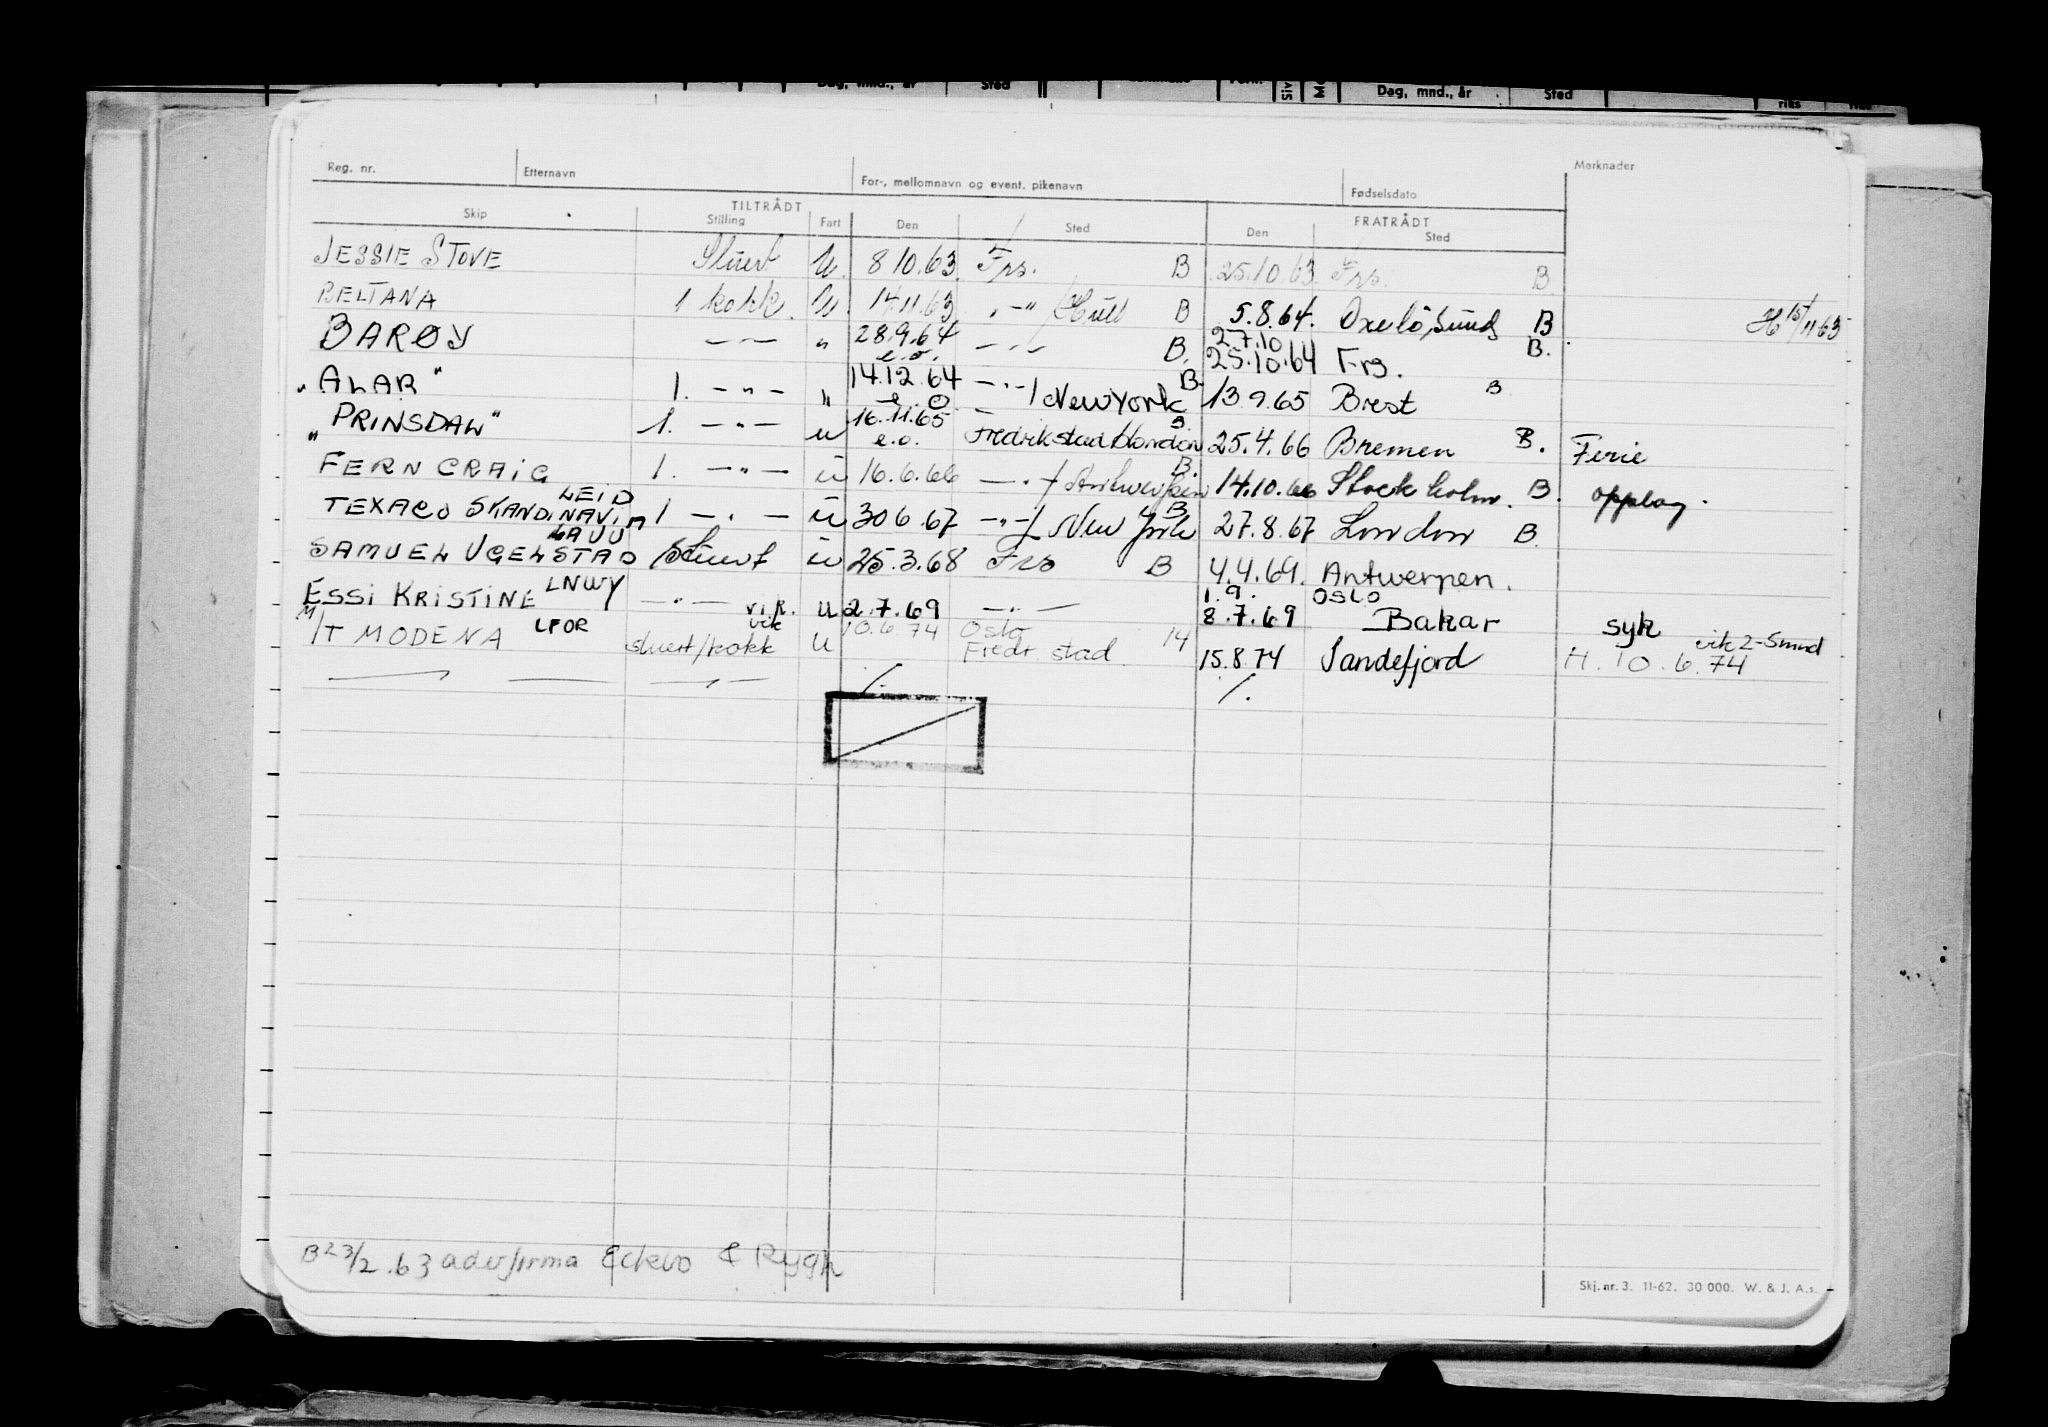 Dag, mnd., år Sted Dag, mnd., år Sted
Reg. nr. Etternavn For-, mellomnavn og event. pikenavn Fødselsdato Merknader
TILTRÅDT FRATRÅDT
Skip Stilling Fart Den Sted Den Sted
JESSIE STOVE Stuert U. 8 10.63 Frs. B 25.10.63 Frs. B
BELTANA 1 kokk. U. 14.11.63 "-" / Hull B 5.8.64. Oxeløsund B H 15/11 63
BARØY — " — " 28.9.64 e.o. — " — B. 27.10 25.10.64 Frs. B.
"ALAR" 1. — " — " 14.12.64 e.o. — " — / New York B. 13 9.65 Brest B
"PRINSDAL" 1. — " — u 16.11.65 e.o. Fredrikstad / London B 25.4.66 Bremen B. Ferie
FERNCRAIG 1. — " — u 16.6.66 — " — / Antwerpen B. 14.10.66 Stockholm. B. opplag.
TEXACO SKANDINAVIA LEID 1 — " — u 30 6.67 — " — / New York B 27.8.67 London B.
SAMUEL UGELSTAD LAUU Stuert u 25.3.68 Frs B 4.4.69. Antwerpen.
ESSI KRISTINE LNWY — " — vik. u 2.7.69 — " — 1.9. OSLO 8.7.69 Bakar syk
M/T MODENA LFOR stuert/kokk vik U 10.6.74 Oslo Fredr.stad 14 15.8.74 Sandefjord H. 10.6.74 vik 2-Smnd
B 23/2.63 adv.firma Eckbo & Rygh
Skj. nr. 3. 11-62. 30 000. W. & J. A.s.